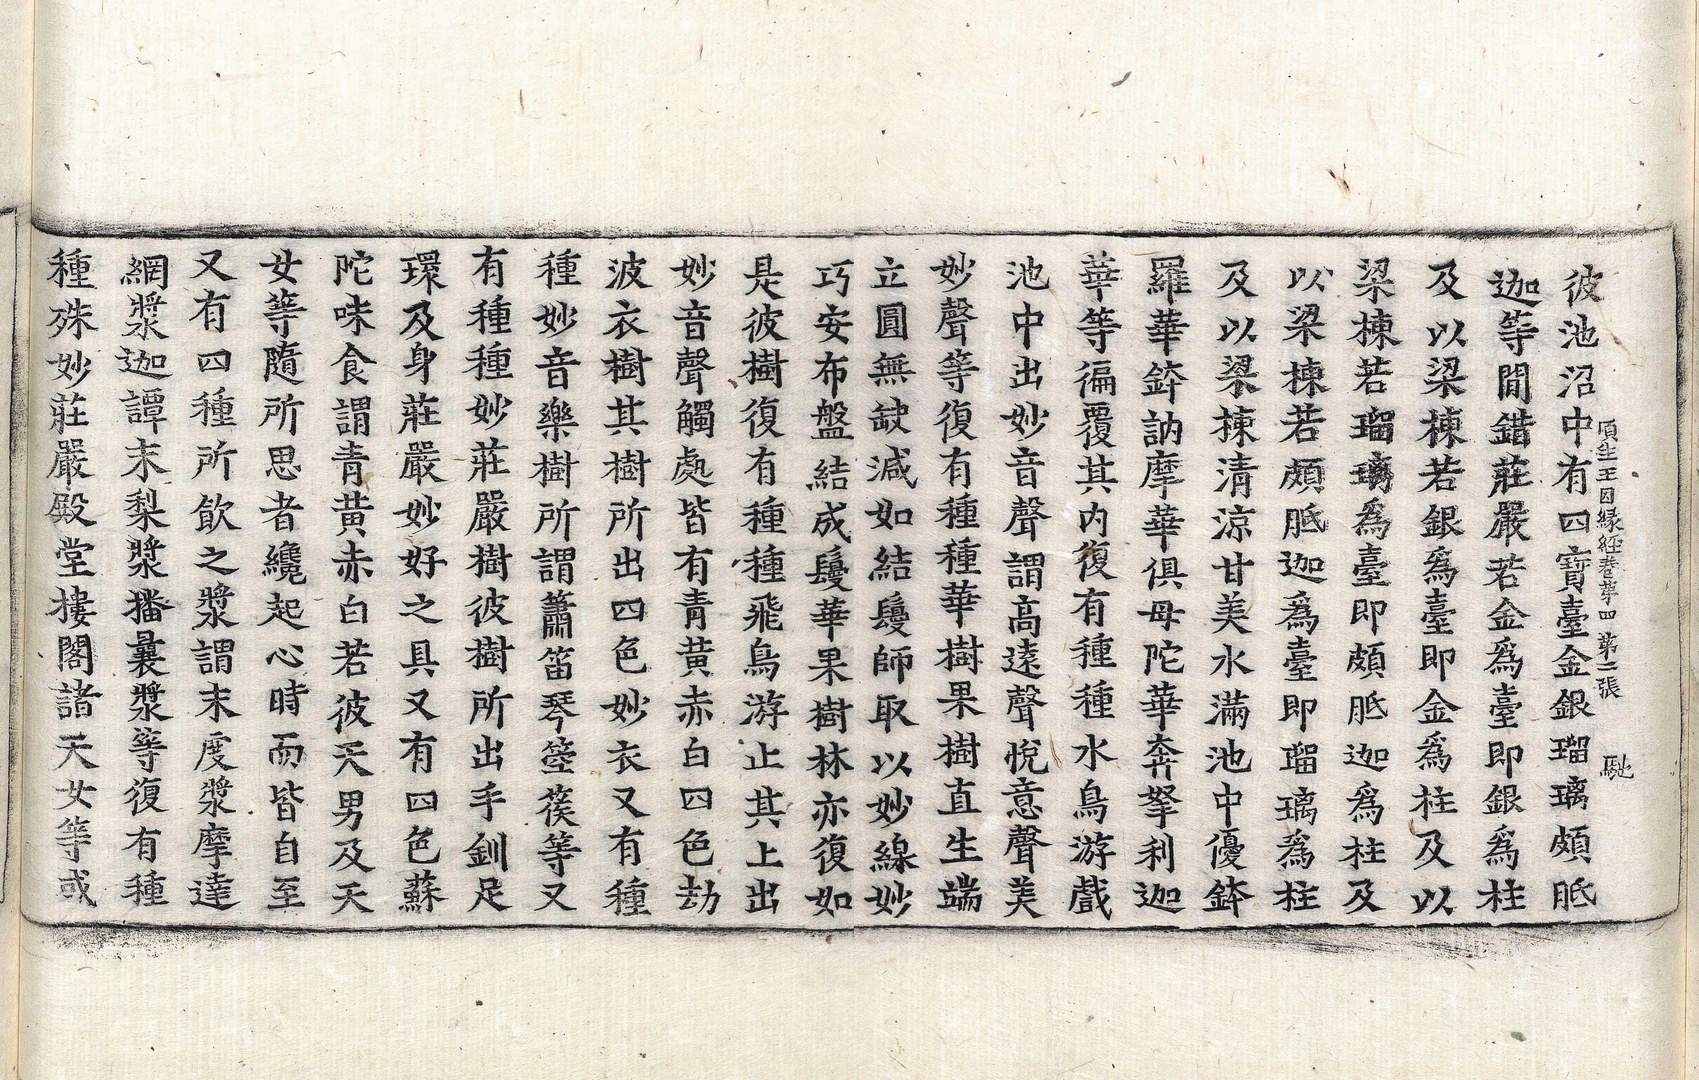 彼池沼中有四寶臺金銀瑠璃頗胝
頂生王因縁經卷苐四 第二張 馳
迦等閒錯莊嚴若金爲臺即銀爲柱
及以梁棟若銀爲臺即金爲柱及以
梁棟若瑠璃爲臺即頗胝迦爲柱及
以梁棟若頗胝迦爲臺即瑠璃爲柱
及以梁棟清涼甘美水滿池中優鉢
羅華鉢訥摩華俱母陀華奔拏利迦
華等徧覆其内復有種種水鳥游戲
池中出妙音聲謂高遠聲悅意聲美
妙聲等復有種種華樹果樹直生端
立圓無缺減如結鬘師取以妙線妙
巧安布盤結成鬘華果樹林亦復如
是彼樹復有種種飛鳥游止其上出
妙音聲觸處皆有青黄赤白四色劫
波衣樹其樹所出四色妙衣又有種
種妙音樂樹所謂簫笛琴箜篌等又
有種種妙莊嚴樹彼樹所出手釧足
環及身莊嚴妙好之具又有四色蘇
陀味食謂青黄赤白若彼天男及天
女等隨所思者纔起心時而皆自至
又有四種所飲之漿謂末度漿摩達
網漿迦譚末梨漿播曩漿等復有種
種殊妙莊嚴殿堂樓閣諸天女等或